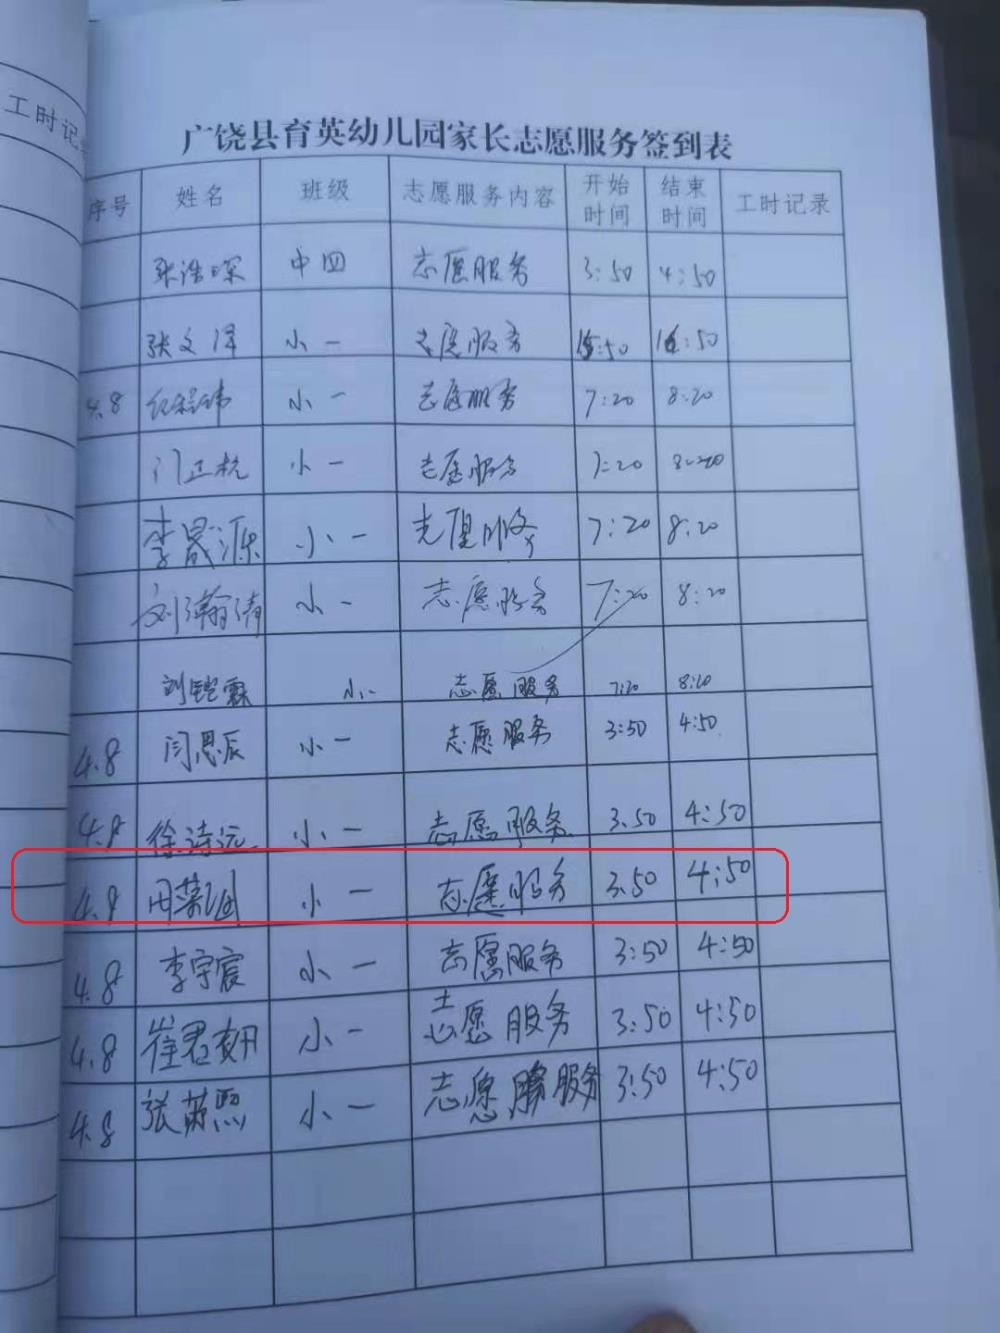 工时记
广饶县育英幼儿园家长志愿服务签到表
序号 姓名 班级 志愿服务内容 开始时间 结束时间 工时记录
张浩琛 中四 志愿服务 3:50 4:50
张文泽 小一 志愿服务 15:50 16:50
4.8 小一 志愿服务 7:20 8:20
门正航 小一 志愿服务 7:20
李晟源 小一 志愿服务 7:20 8:20
刘瀚清 小一 志愿服务 7:20 8:20
刘铠霖 小一 志愿服务 7:20 8:20
4.8 闫思辰 小一 志愿服务 3:50 4:50
4.8 徐诗远 小一 志愿服务 3.50 4:50
4.8 小一 志愿服务 3.50 4:50
4.8 李宇宸 小一 志愿服务 3:50 4:50
4.8 崔君朝 小一 志愿服务 3:50 4:50
4.8 张 熙 小一 志愿服务 3:50 4:50